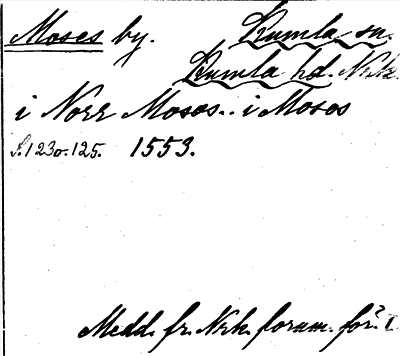 Moses by. Kumla sn.
Kumla hd. Nrk.
i Norr Mosos.. i Mosos
S. 123 o. 125. 1553.
Medd. fr. Nrk. fornm. för. I